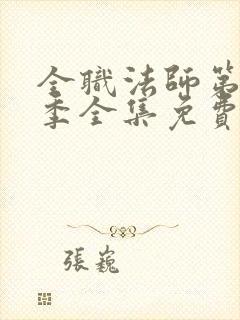 全職法師第
季全集免費
張巍